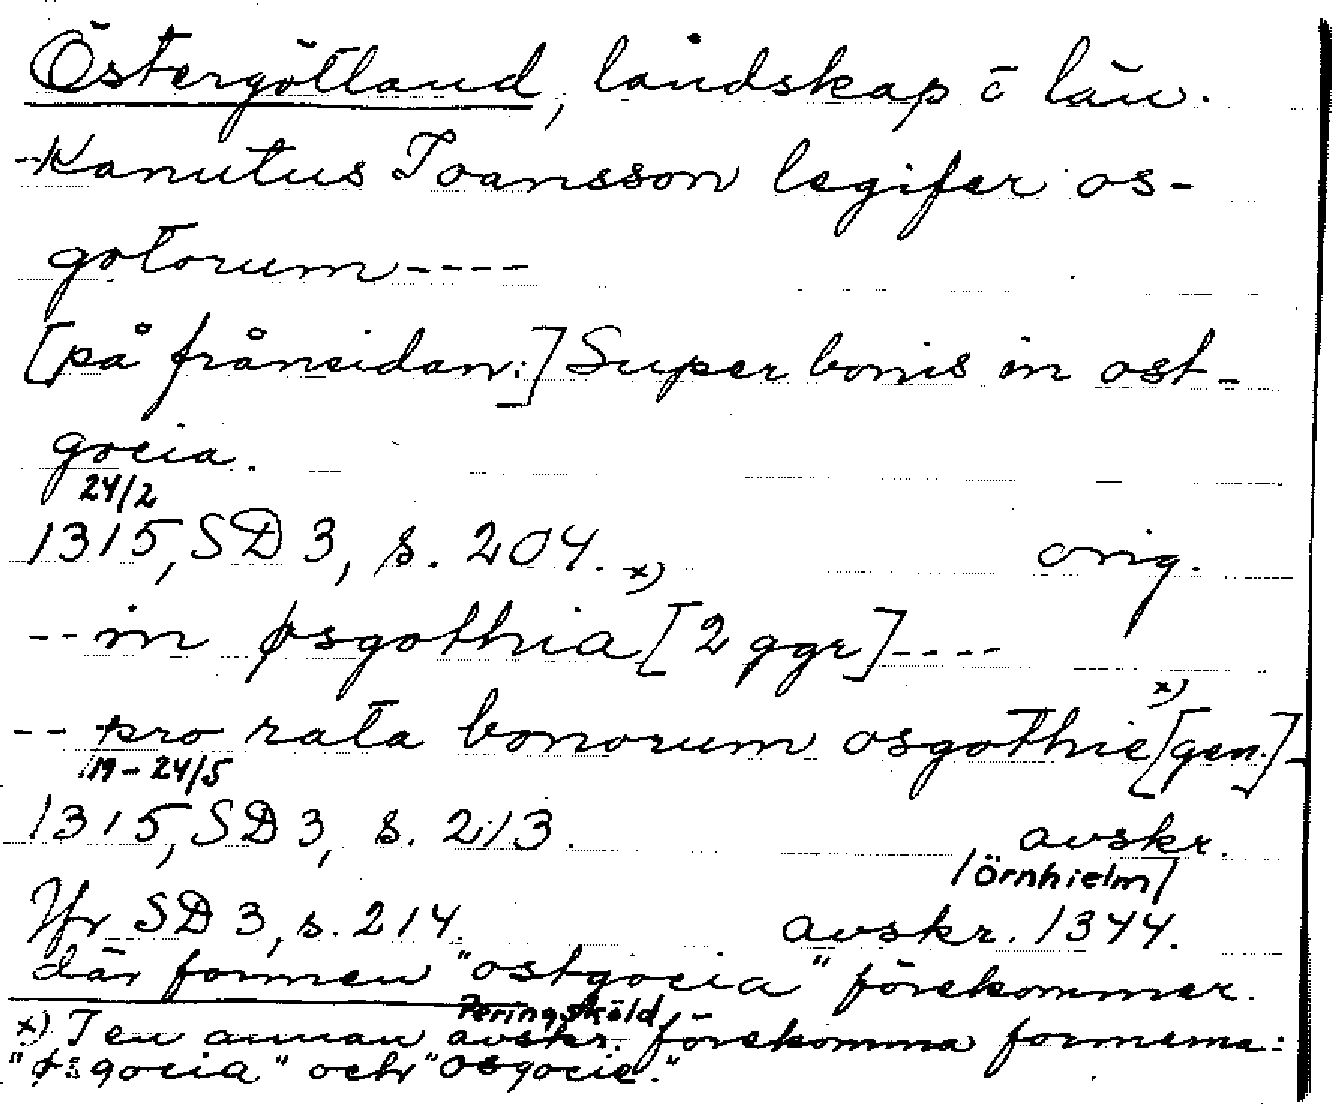 Östergötland, landskap o län.
--Kanutus Joansson legifer os-
gotorum----
[på frånsidan:] Super bonis in ost-
gocia.
24/2
1315, SD 3, s. 204. orig.
--in øsgothia x) [2 ggr]----
-- pro rata bonorum osgothie x) [gen.]-
19-24/5
1315, SD 3, s. 213. avskr.
/Örnhielm/
Jfr SD 3, s. 214. avskr. 1344.
där formen "ostgocia" förekommer.
Peringsköld
x) I en annan avskr. förekomma formerna:
"øsgocia" och "osgocie."